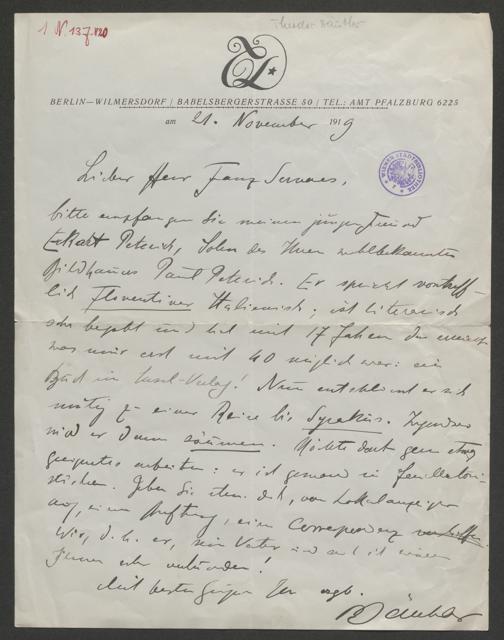 1 N 137.420
Theodor Däubler
BERLIN—WILMERSDORF / BABELSBERGERSTRASSE 50 / TEL.: AMT PFALZBURG 6225
am 21. November 1919
Lieber Herr Franz Servaes,
bitte empfangen Sie meinen jungen Freund
Eckart Peterich, Sohn des Ihnen wohlbekannten
Bildhauers Paul Peterich. Er spricht vortreff-
lich Florentiner Italienisch; ist literarisch
sehr begabt und hat mit 17 Jahren erreicht
was mir erst mit 40 möglich war: ein
Buch im Insel-Verlag! Nun entschliesst er sich
mutig zu einer Reise bis Syrakus. Irgendwo
wird er dann säumen. Möchte dort gern etwas
geeignetes arbeiten: er ist gewandt im Feuilletoni-
stischen. Geben Sie ihm, d.h., vom Lokalanzeiger
aus, einen Auftrag, eine Correspondenz
Wir, d.h. er, sein Vater und ich
Ihnen sehr verbunden!
Mit besten Grüssen Ihr ergb.
Däubler
WIENER STADTBIBLIOTHEK